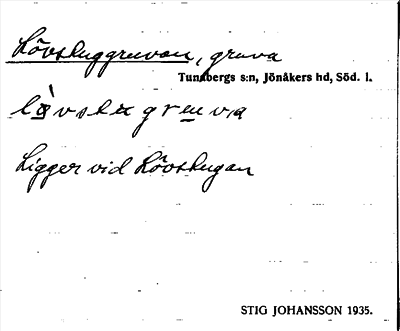 Lövskuggruvan, gruva
Tunabergs s:n, Jönåkers hd, Söd. l.
Ligger vid Lövskugan
STIG JOHANSSON 1935.